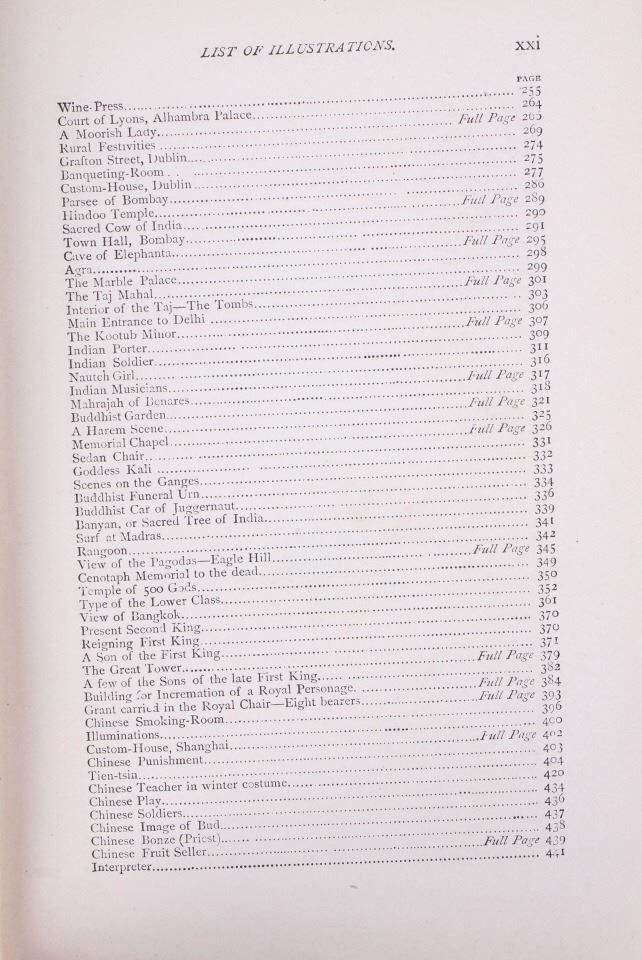 LIST OF ILLUSTRATIONS. xxi
PAGE
Wine-Press........ 255
Court of Lyons, Alhambra Palace........ 264
A Moorish Lady........ Full Page 265
Rural Festivities ........ 269
Grafton Street, Dublin........ 274
Banqueting-Room ........ 275
Custom-House, Dublin ........ 277
Parsee of Bombay........ 286
Hindoo Temple........ Full Page 289
Sacred Cow of India........ 290
Town Hall, Bombay........ 291
Cave of Elephanta........ Full Page 295
Agra........ 298
The Marble Palace........ 299
The Taj Mahal........ Full Page 301
Interior of the Taj—The Tombs........ 303
Main Entrance to Delhi ........ 306
The Kootub Minor........ Full Page 307
Indian Porter........ 309
Indian Soldier........ 311
Nautch Girl........ 316
Indian Musicians........ Full Page 317
Mahrajah of Benares........ 318
Buddhist Garden........ Full Page 321
A Harem Scene........ 325
Memorial Chapel........ Full Page 326
Sedan Chair........ 331
Goddess Kali ........ 332
Scenes on the Ganges........ 333
Buddhist Funeral Urn........ 334
Buddhist Car of Juggernaut........ 336
Banyan, or Sacred Tree of India........ 339
Surf at Madras........ 341
Rangoon........ 342
View of the Pagodas—Eagle Hill........ Full Page 345
Cenotaph Memorial to the dead........ 349
Temple of 500 Gods........ 350
Type of the Lower Class........ 352
View of Bangkok........ 361
Present Second King........ 370
Reigning First King........ 370
A Son of the First King........ 371
The Great Tower........ Full Page 379
A few of the Sons of the late First King........ 382
Building for Incremation of a Royal Personage. ........ Full Page 384
Grant carried in the Royal Chair—Eight bearers........ Full Page 393
Chinese Smoking-Room........ 396
Illuminations........ 400
Custom-House, Shanghai........ Full Page 402
Chinese Punishment........ 403
Tien-tsin........ 404
Chinese Teacher in winter costume........ 420
Chinese Play........ 434
Chinese Soldiers........ 436
Chinese Image of Bud........ 437
Chinese Bonze (Priest)........ 438
Chinese Fruit Seller........ Full Page 439
Interpreter........ 441